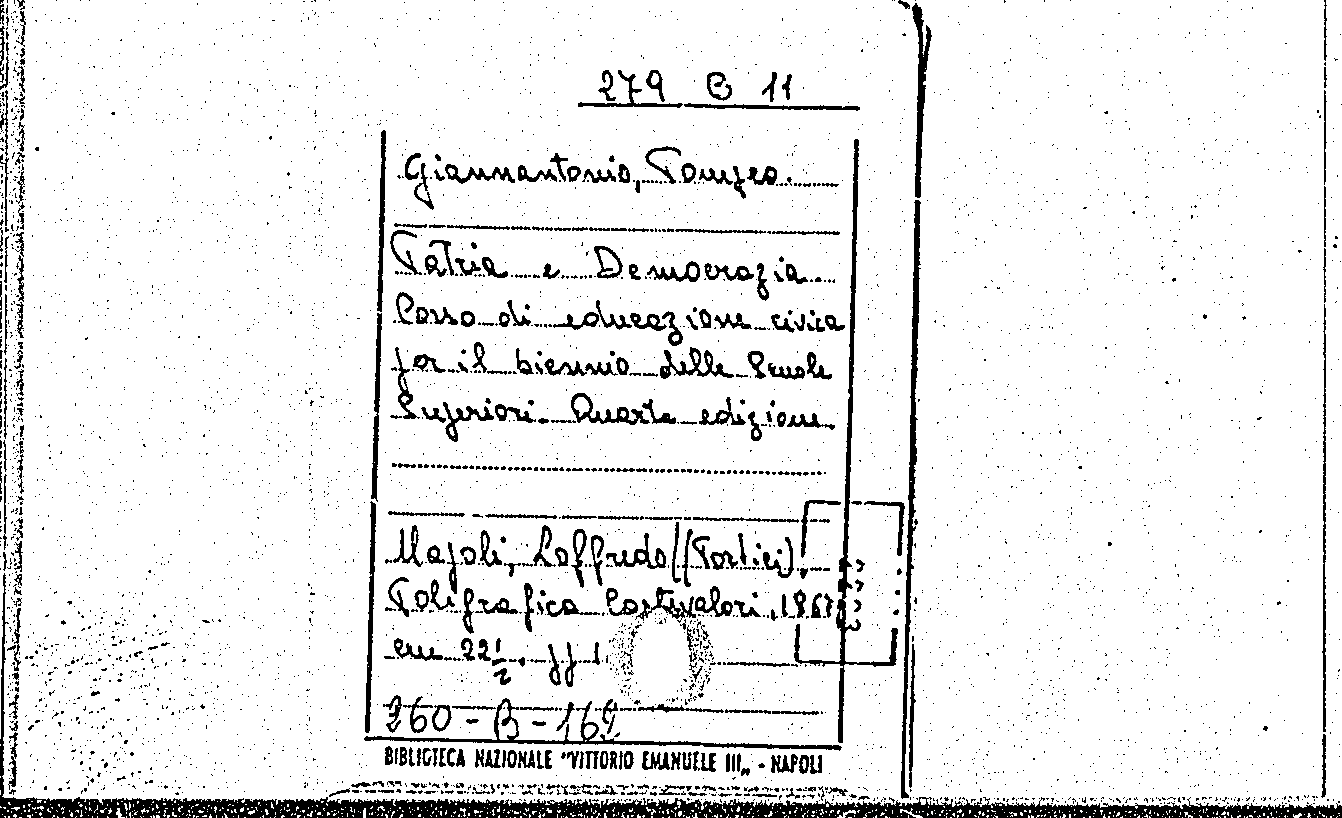 279 B 11
Giannantonio, Pompeo.
Patria e Democrazia.
Corso di educazione civica
per il biennio delle Scuole
Superiori. Quarta edizione.
Napoli, Loffredo ((Portici),
Poligrafica Cortivalori,
cm 22 1/2. pp
260-B-162
BIBLIOTECA NAZIONALE "VITTORIO EMANUELE III„ - NAPOLI